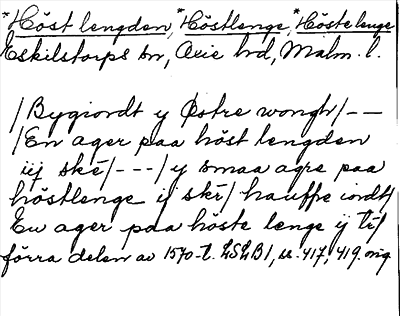 *Höst lengden, *Höstlenge, *Höste lenge
Eskilstorps sn, Oxie hd, Malm. l.
/Bygiordt y Østre wongh/ – –
/En ager paa höst lengden
iij ske/ - - - / y smaa agre paa
höstlenge ij skr/ hauffre iordt/
En ager paa höste lenge ij tr/
förra delen av 1570-t. LSLB1, ss. 417, 419. orig